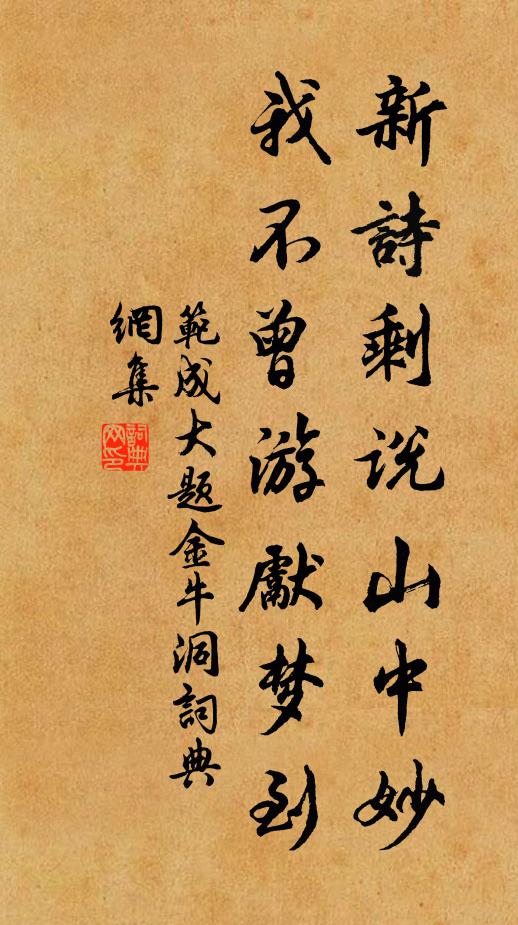 新詩剩説山中妙
我不曾游獻梦到
範成大题金牛洞詞典
網集
詞典
网印